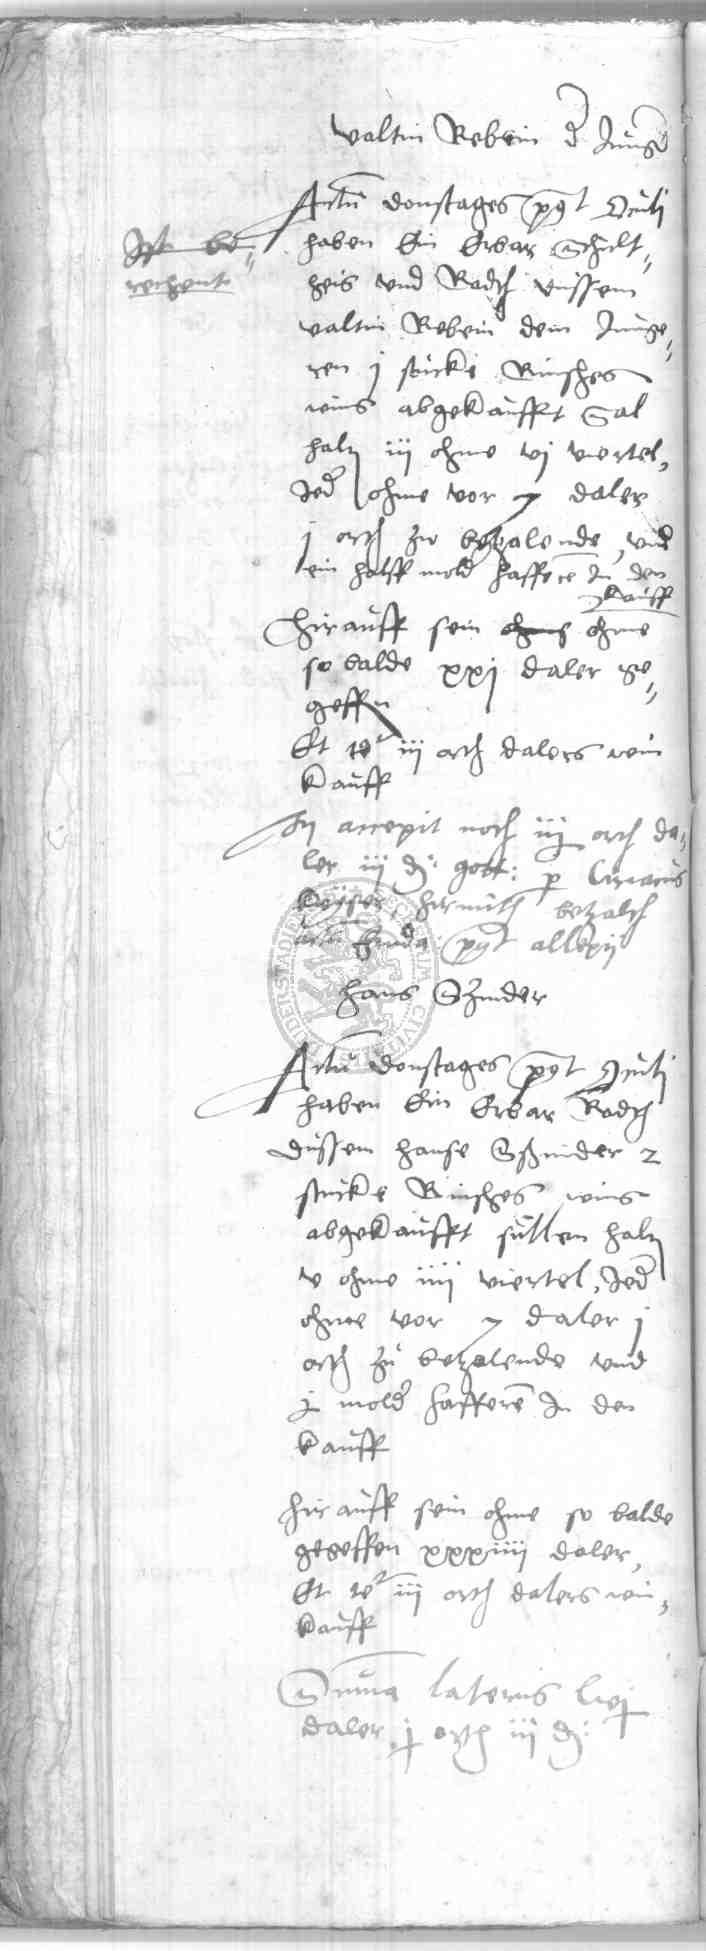 Valtin Rebein d Junger
Ist be-
rechent
Actum donstages post Oculi
haben Ein Erbar Schult-
heis vnd Radth dussem
valtin Rebein dem Junge-
ren j stucke Rinsches
wins abgekaufft Sal
haltn iij ohme vj viertel,
Jeder ohme vor 7 daler
j orth zw betzalende, vnd
ein halff molder haffern In den
kauff
Hirauff sein ohme
so balde xxj daler ge-
geffen
Et iij orth dalers win
kauff
accepit noch iij orth da-
ler iij d gott: p Ciriacus
Keyser hirmith betzalth
post
Hans Schnider
Actum donstages post Oculi
haben Ein Erbar Radth
dussem Hanse Schnider 2
stucke Rinsches wins
abgekaufft sullen haltn
v ohme iiij viertel, Jeder
ohme vor 7 daler j
orth zu betzalende vnd
j molder hafferen In den
kauff
Hirauff sein ohme so balde
gegeffen xxxiiij daler,
Et iij orth dalers win-
kauff
Summa lateris lvj
daler j orth iij d